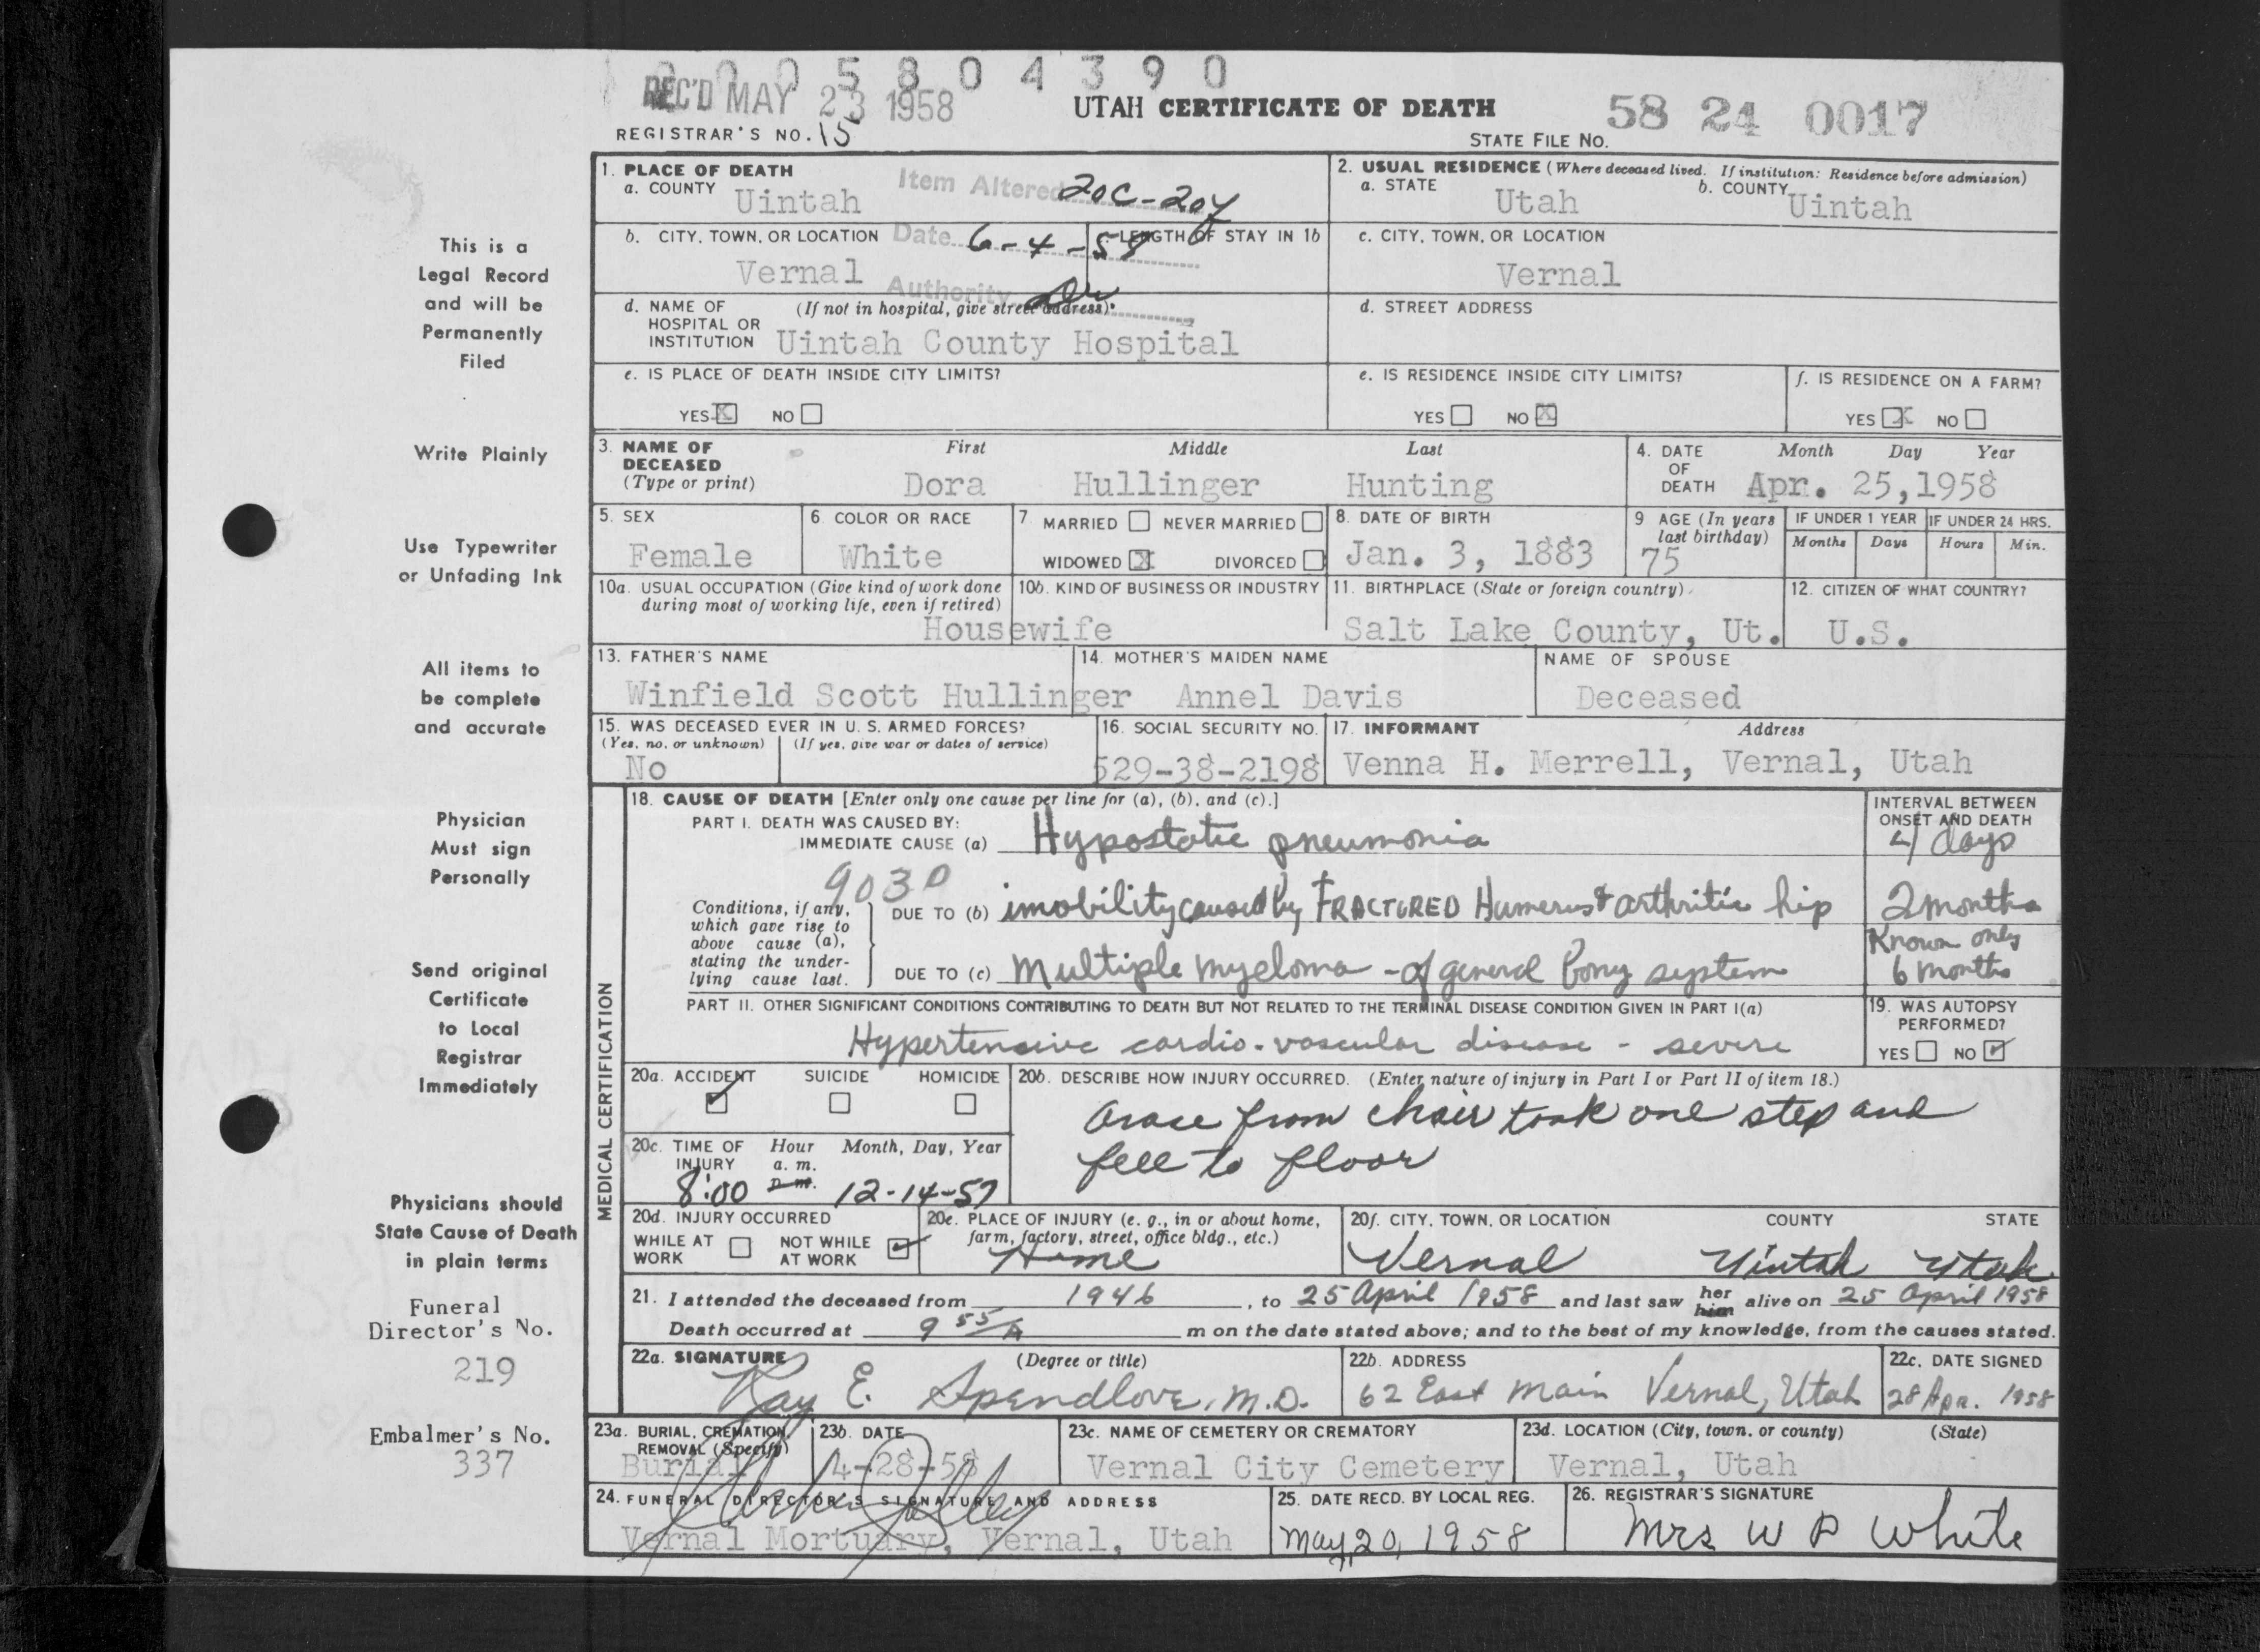 0005804390
REC'D MAY 23 1958
UTAH CERTIFICATE OF DEATH
58 24 0017
REGISTRAR'S NO. 15
STATE FILE NO.
1. PLACE OF DEATH
a. COUNTY Uintah
Item Altered 20c-20f
2. USUAL RESIDENCE (Where deceased lived. If institution: Residence before admission)
a. STATE Utah
b. COUNTY Uintah
b. CITY, TOWN, OR LOCATION Vernal
Date 6-4-58
c. LENGTH OF STAY IN 1b
Authority Dr
c. CITY, TOWN, OR LOCATION Vernal
d. NAME OF HOSPITAL OR INSTITUTION (If not in hospital, give street address)
Uintah County Hospital
d. STREET ADDRESS
e. IS PLACE OF DEATH INSIDE CITY LIMITS?
YES X NO
e. IS RESIDENCE INSIDE CITY LIMITS?
YES NO X
f. IS RESIDENCE ON A FARM?
YES X NO
3. NAME OF DECEASED (Type or print)
First Middle Last
Dora Hullinger Hunting
4. DATE OF DEATH
Month Day Year
Apr. 25, 1958
5. SEX
Female
6. COLOR OR RACE
White
7. MARRIED NEVER MARRIED
WIDOWED X DIVORCED
8. DATE OF BIRTH
Jan. 3, 1883
9 AGE (In years last birthday)
75
IF UNDER 1 YEAR
Months Days
IF UNDER 24 HRS.
Hours Min.
10a. USUAL OCCUPATION (Give kind of work done during most of working life, even if retired)
Housewife
10b. KIND OF BUSINESS OR INDUSTRY
11. BIRTHPLACE (State or foreign country)
Salt Lake County, Ut.
12. CITIZEN OF WHAT COUNTRY?
U.S.
13. FATHER'S NAME
Winfield Scott Hullinger
14. MOTHER'S MAIDEN NAME
Annel Davis
NAME OF SPOUSE
Deceased
15. WAS DECEASED EVER IN U. S. ARMED FORCES?
(Yes, no, or unknown) (If yes, give war or dates of service)
No
16. SOCIAL SECURITY NO.
529-38-2198
17. INFORMANT Address
Venna H. Merrell, Vernal, Utah
MEDICAL CERTIFICATION
18. CAUSE OF DEATH [Enter only one cause per line for (a), (b), and (c).]
PART I. DEATH WAS CAUSED BY:
IMMEDIATE CAUSE (a) Hypostatic pneumonia
INTERVAL BETWEEN ONSET AND DEATH
4 days
9030
Conditions, if any, which gave rise to above cause (a), stating the underlying cause last.
DUE TO (b) imobility caused by FRACTURED Humerus & arthritic hip
2 months
DUE TO (c) Multiple myeloma - of general bony system
Known only 6 months
PART II. OTHER SIGNIFICANT CONDITIONS CONTRIBUTING TO DEATH BUT NOT RELATED TO THE TERMINAL DISEASE CONDITION GIVEN IN PART I(a)
Hypertensive cardio-vascular disease - severe
19. WAS AUTOPSY PERFORMED?
YES NO ✓
20a. ACCIDENT ✓ SUICIDE HOMICIDE
20b. DESCRIBE HOW INJURY OCCURRED. (Enter nature of injury in Part I or Part II of item 18.)
Arose from chair took one step and
fell to floor
20c. TIME OF INJURY
Hour Month, Day, Year
a. m.
p. m.
8:00 12-14-57
20d. INJURY OCCURRED
WHILE AT WORK NOT WHILE AT WORK ✓
20e. PLACE OF INJURY (e. g., in or about home, farm, factory, street, office bldg., etc.)
Home
20f. CITY, TOWN, OR LOCATION COUNTY STATE
Vernal Uintah Utah
21. I attended the deceased from 1946, to 25 April 1958 and last saw her him alive on 25 April 1958
Death occurred at 9 55/A m on the date stated above; and to the best of my knowledge, from the causes stated.
22a. SIGNATURE (Degree or title)
Ray E. Spendlove, M.D.
22b. ADDRESS
62 East Main Vernal, Utah
22c. DATE SIGNED
28 Apr. 1958
23a. BURIAL, CREMATION, REMOVAL (Specify)
Burial
23b. DATE
4-28-58
23c. NAME OF CEMETERY OR CREMATORY
Vernal City Cemetery
23d. LOCATION (City, town, or county) (State)
Vernal, Utah
24. FUNERAL DIRECTOR'S SIGNATURE AND ADDRESS
Vernal Mortuary, Vernal, Utah
25. DATE RECD. BY LOCAL REG.
May 20, 1958
26. REGISTRAR'S SIGNATURE
Mrs W P White
This is a
Legal Record
and will be
Permanently
Filed
Write Plainly
Use Typewriter
or Unfading Ink
All items to
be complete
and accurate
Physician
Must sign
Personally
Send original
Certificate
to Local
Registrar
Immediately
Physicians should
State Cause of Death
in plain terms
Funeral
Director's No.
219
Embalmer's No.
337